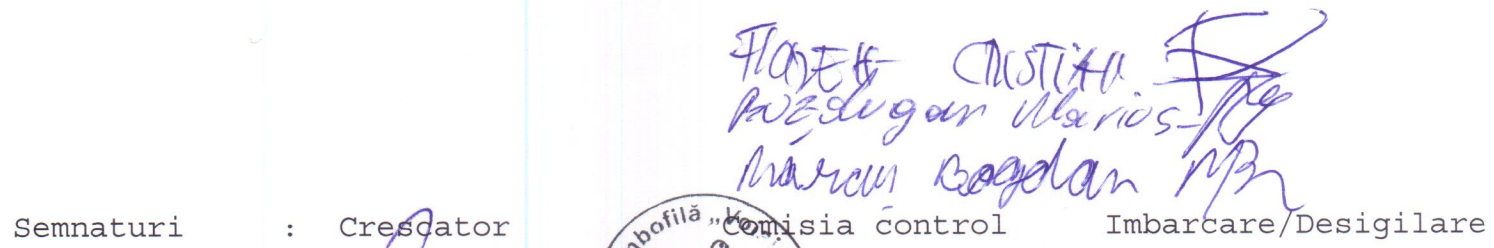 CRISTIAN
Buzdugan Marius
Bogdan MB
Semnaturi : Crescator Comisia control Imbarcare/Desigilare